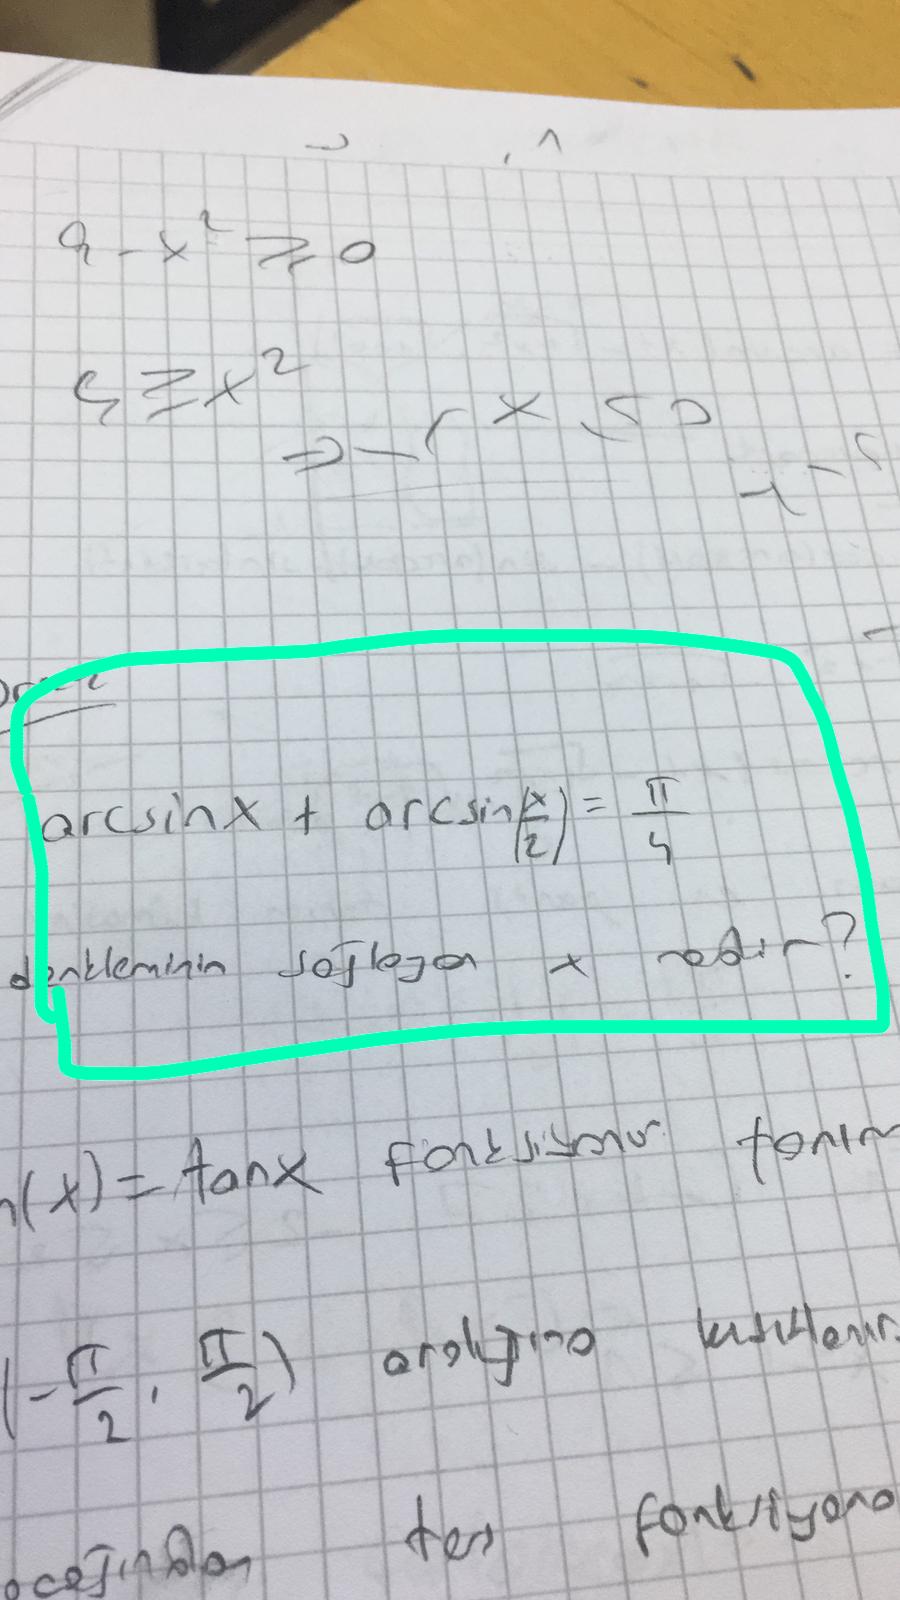 9 - x² ≥ 0
9 ≥ x²
Örnek
arcsinx + arcsin(x/2) = π/4
denkleminin sağlayan x nedir?
h(x) = tanx fonksiyonu tanım
(-π/2, π/2) aralığına kısıtlanır
ters fonksiyona